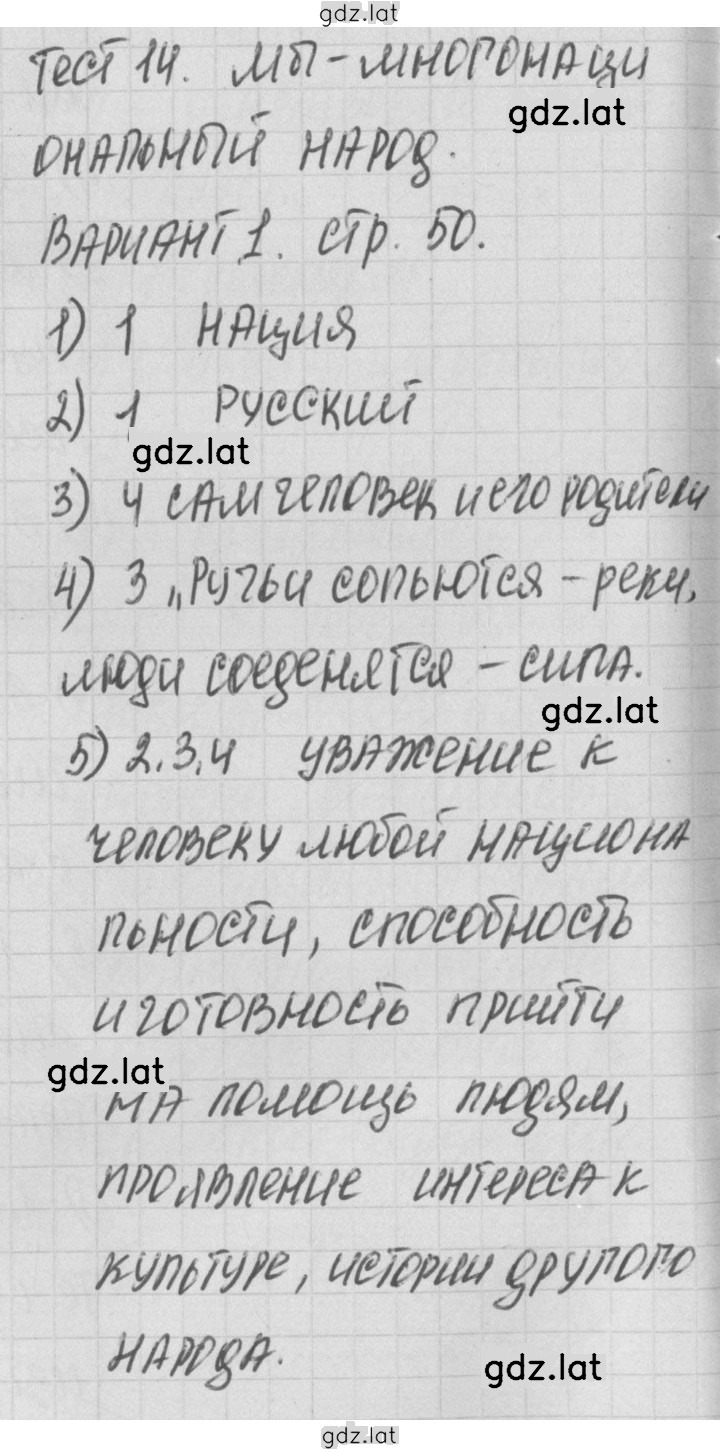 gdz.lat
Тест 14. Мы - многонаци
gdz.lat
ональный народ.
Вариант 1. стр. 50.
1) 1 нация
2) 1 русский
gdz.lat
3) 4 сам человек и его родители
4) 3 „Ручьи сольются - реки,
люди соеденятся - сила.
gdz.lat
5) 2.3.4 уважение к
человеку любой национа
льности, способность
и готовность прийти
gdz.lat
на помощь людям,
проявление интереса к
культуре, истории другого
народа.
gdz.lat
gdz.lat